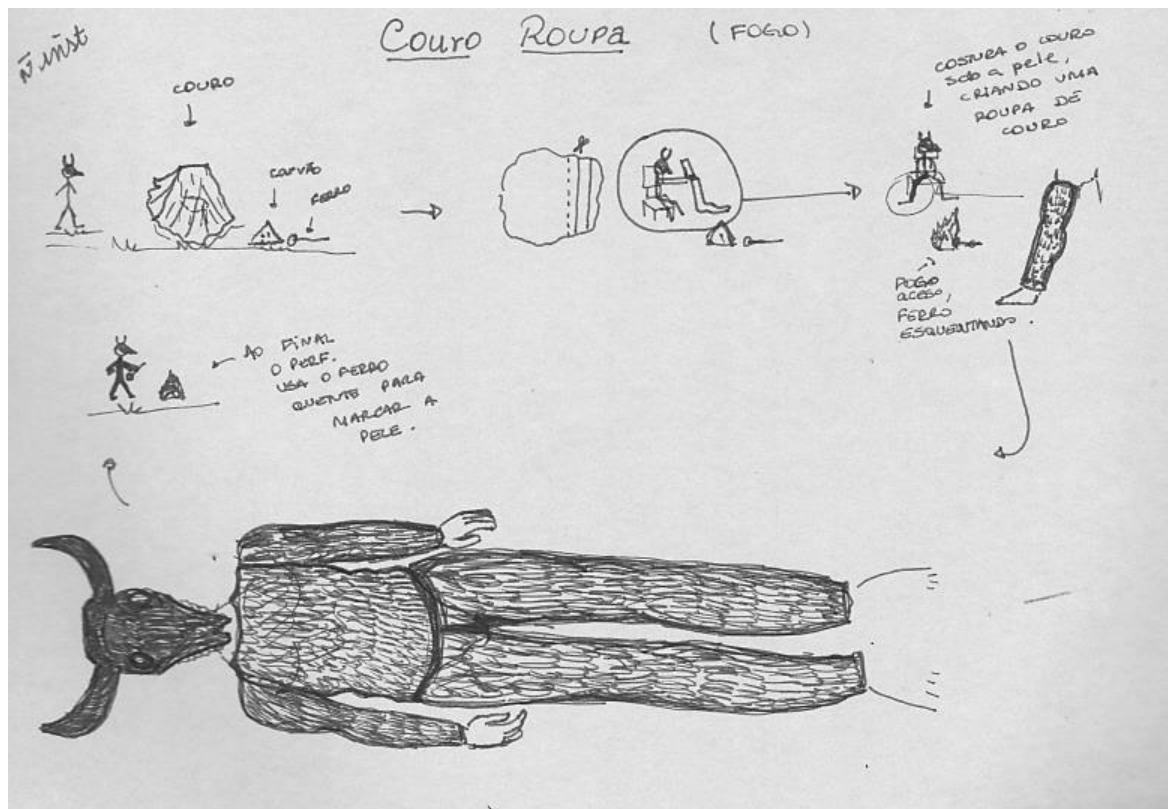 Couro Roupa (FOGO)
COURO
CARVÃO
FERRO
COSTURA O COURO
SOB A pele,
CRIANDO UMA
ROUPA DE
COURO
FOGO
ACESO,
FERRO
ESQUENTANDO.
AO FINAL
O PERF.
USA O FERRO
QUENTE PARA
MARCAR A
PELE.